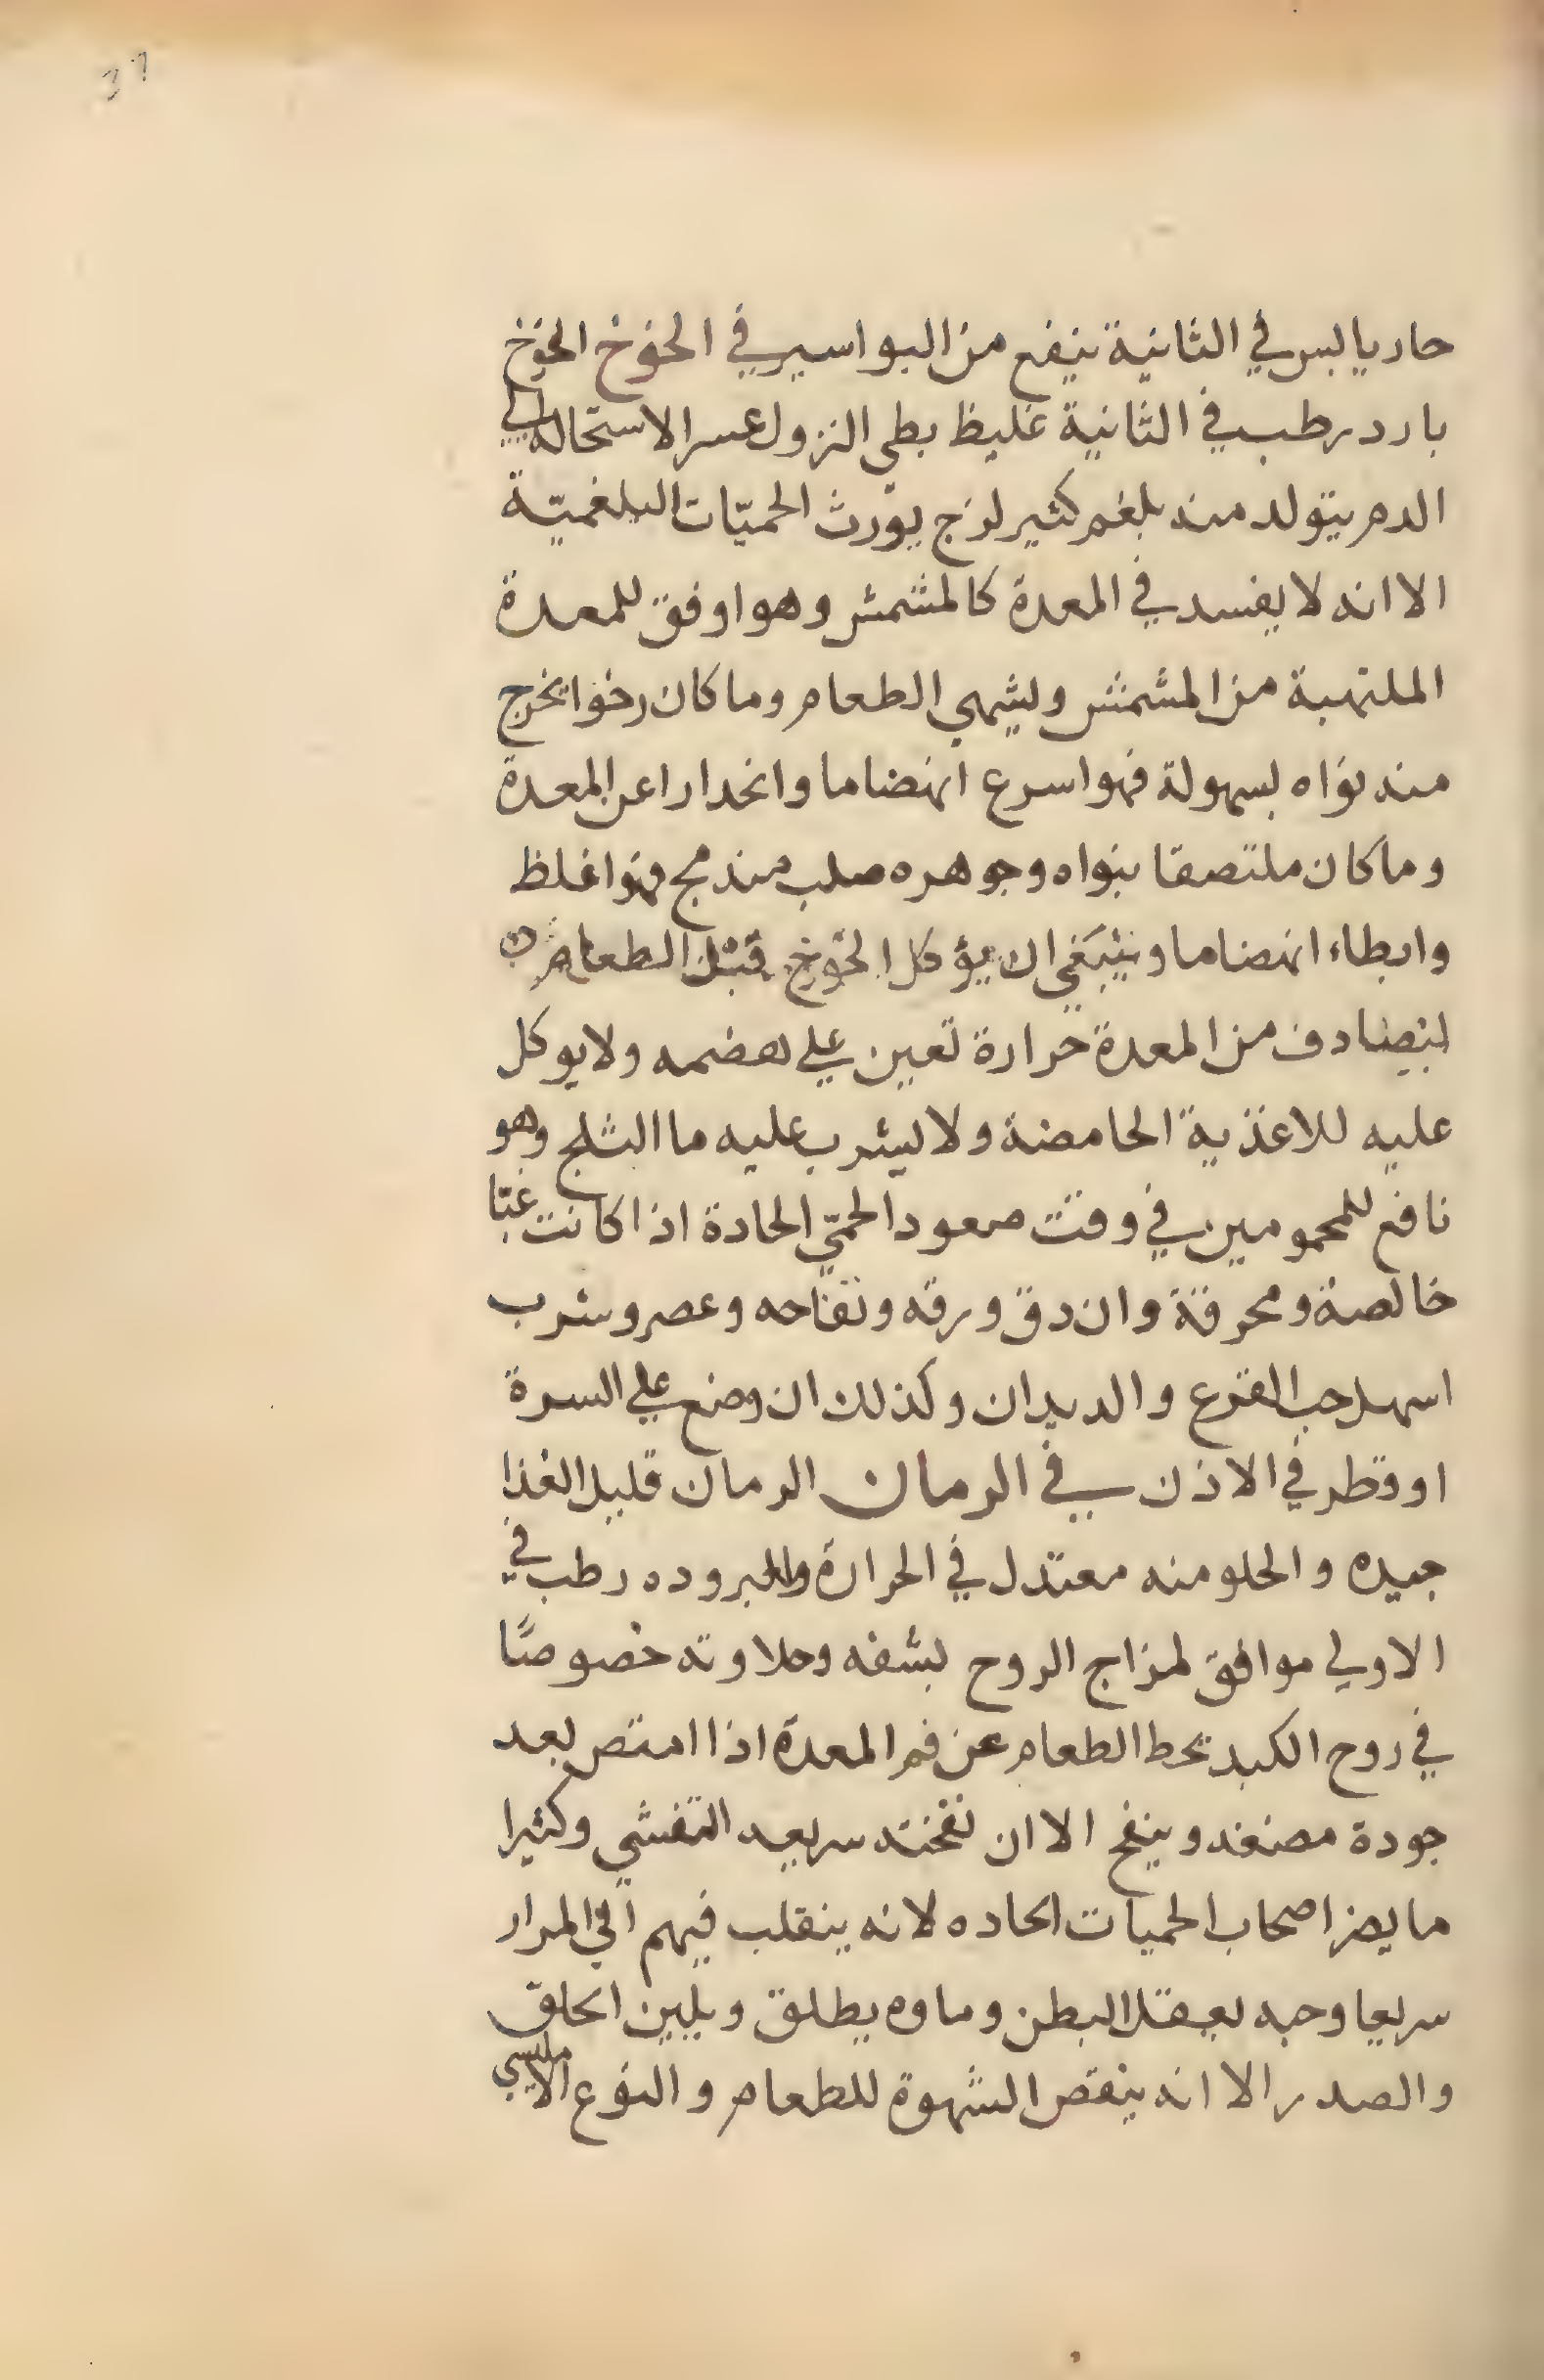 31
حار يابس في الثانية ينفع من البواسير في الخوخ الخوخ
بارد رطب في الثانية غليظ بطي النزول عسر الاستحالة الي
الدم يتولد منه بلغم كثير لزج يورث الحميّات البلغميّة
الا انه لا يفسد في المعدة كالمشمش وهو اوفق للمعدة
الملتهبة من المشمش ويشهي الطعام وما كان رخوا يخرج
منه نواه بسهولة فهو اسرع انهضاما وانحدارا عن المعدة
وما كان ملتصقا بنواه وجوهره صلب مندمج فهو اغلظ
وابطاء انهضاما وينبَغي ان يؤكل الخوخ قبْل الطعام
ليصادف من المعدة حرارة تعين علي هضمه ولا يوكل
عليه للاغذية الحامضة ولا يشرب عليه ما الثلج وهو
نافع للمحمومين في وقت صعود الحمّي الحادة اذا كانت غبّا
خالصة ومحرقة وان دق ورقه وتفاحه وعصر وشرب
اسهل حب القرع والديدان وكذلك ان وضع علي السرة
او قطر في الاذن في الرمان الرمان قليل الغذا
جيده والحلو منه معتدل في الحرارة والبروده رطب في
الاولي موافق لمزاج الروح بشفه وحلاوته خصوصًا
في روح الكبد يحط الطعام عن فم المعدة اذا امتص بعد
جودة مضغه وينفخ الا ان نفخته سريعه التفشي وكثيرا
ما يضر اصحاب الحميات الحاده لانه ينقلب فيهم الي المرار
سريعا وحبه يعقل البطن وماوه يطلق ويلين الحلق
والصدر الا انه ينقص الشهوة للطعام والنوع الامليسي